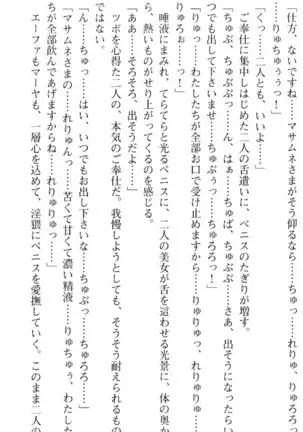 「仕方、ないですね……マサムネさまがそう仰るなら……ちゅろ、れりゅっ……」
りゅちゅぅぅっ！」
「くっ……二人とも、いいよ……」
ご奉仕に集中しはじめた二人の舌遣いに、ペニスのたぎりが増す。
「ちゅぷ、ちゅぷぷっ……ん、はぁ……ちゅぱ、ちゅぷぷ……さあ、出そうになったらい
つでも出して下さいませ……ちゅぷっ……ちゅろろっ！」
「りゅっ……わたしたちが全部お口で受け止めますから……りゅりゅっ、れりゅりゅっ……
りゅろぉっ……っ！」
唾液にまみれ、てらてらと光るペニスに、二人の美女が舌を這わせる光景に、体の奥か
ら、熱いものがせり上がってくるのを感じる。
「あぁ……そろそろ、出そうだよ……」
ツボを心得た二人の、本気のご奉仕だ。我慢しようとしても、そうそう耐えられるもの
ではない。
「ん……ちゅっ……はい、いつでもお出し下さいな……ちゅぷっ……ちゅろろ……」
「マサムネさまの……れりゅんっ……苦くて甘くて濃い精液……りゅちゅぅ、わたした
ちが全部飲んであげますからね……れりゅりゅっ……」
エーファもマーヤも、一層心を込めて、淫猥にペニスを愛撫していく。このまま二人の